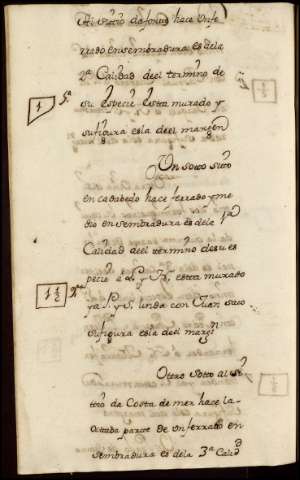 Al sittio da fonte hace un fe
rrado en sembradura es de la
2ª Calidad del termino de
1 5ª su especie esta murado y
su figura es la del margen
Un sotto sitto
en cabebedo hace ferrado y me
dio en sembradura es de la 1ª
Calidad del termino de su es
pecie murado
1 ½ linda con Juan soto
su figura es la del margn
Otero Sotto al si
ttio da Costa de mer hace la
octtava partte de un ferrado en
sembradura es de la 3ª Calid